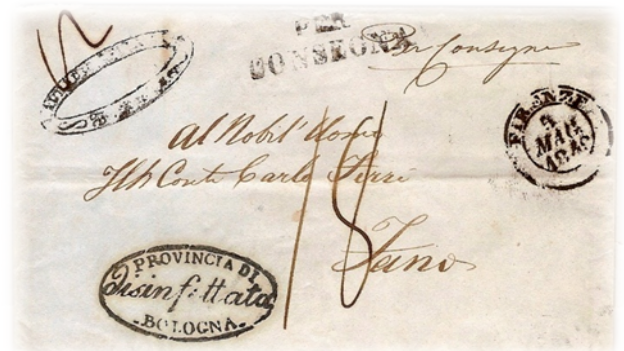 PER
CONSEGNA
Per Consegna
FIRENZE
5
MAG
1849
Al Nobil' Uomo
Conte Carlo Ferri
18
Fano
PROVINCIA DI
Disinfittata
BOLOGNA